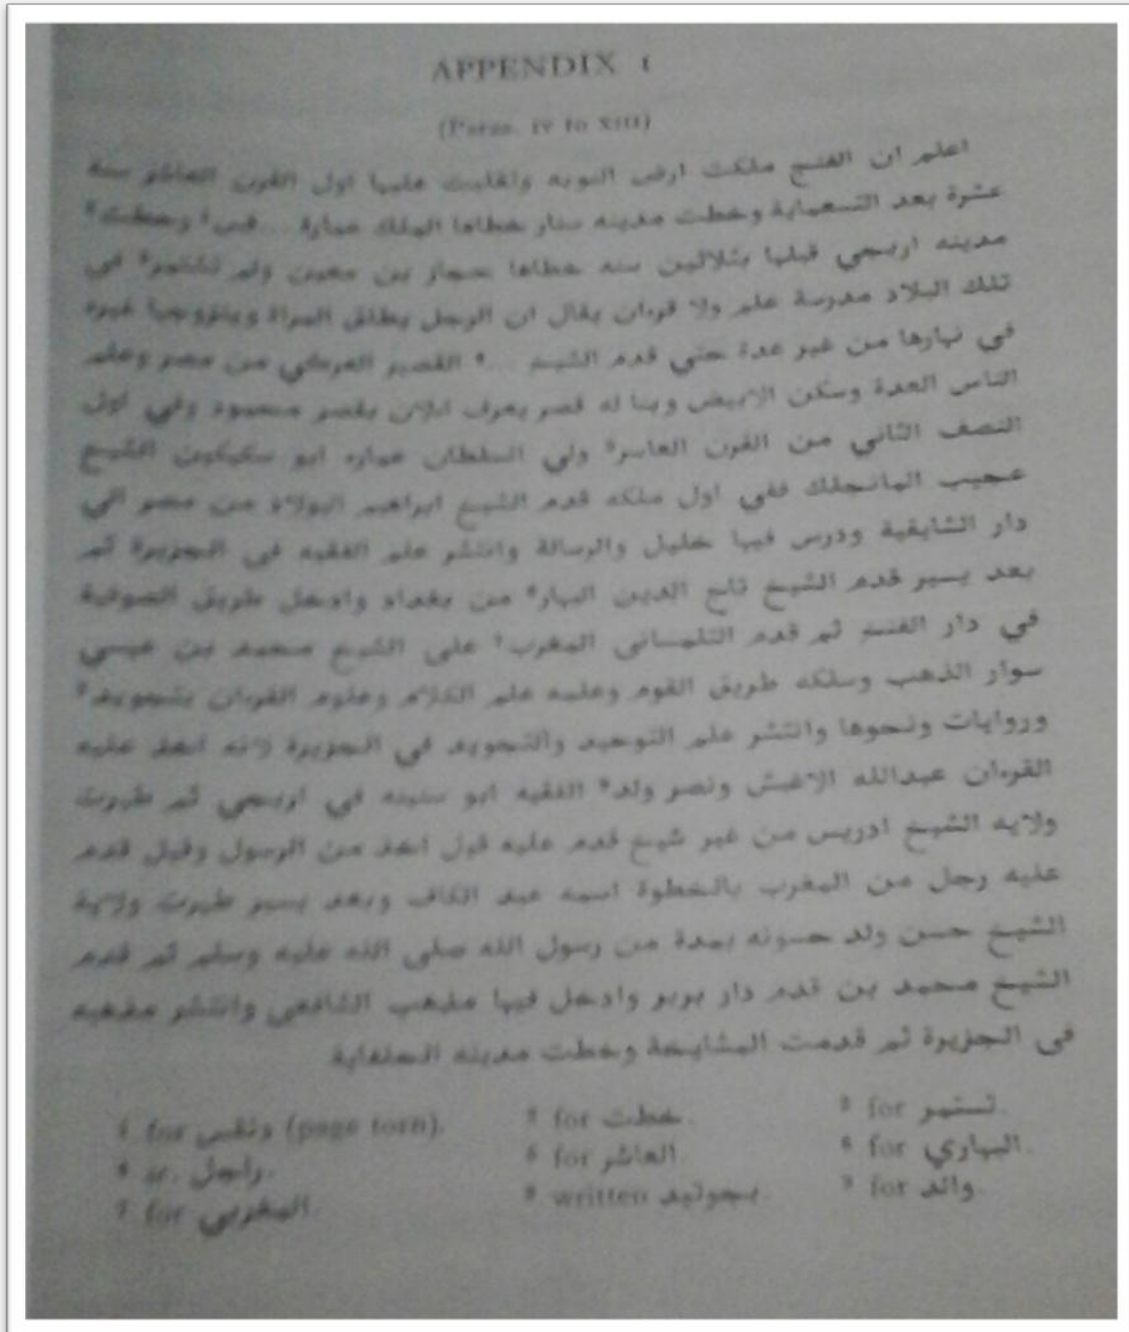 APPENDIX I
(Paras. IV to XIII)
اعلم ان الفنج ملكت ارض النوبه وتغلبت عليها اول القرن العاشر سنه
عشرة بعد التسعماية وخطت مدينه سنار خطاها الملك عمارة ... وخطت²
مدينه اربجي قبلها بثلاثين سنه خطاها حجاز بن معين ولم تشتهر³ في
تلك البلاد مدرسة علم ولا قرءان يقال ان الرجل يطلق المراة ويتزوجها غيره
في نهارها من غير عدة حتي قدم الشيخ ...⁴ القصير العركي من مصر وعلم
الناس العدة وسكن الابيض وبنا له قصر يعرف الان بقصر محمود وفي اول
النصف الثاني من القرن العاسر⁵ ولي السلطان عماره ابو سكيكين الشيخ
عجيب المانجلك ففي اول ملكه قدم الشيخ ابراهيم البولاد من مصر الي
دار الشايقية ودرس فيها خليل والرسالة وانتشر علم الفقيه في الجزيرة ثم
بعد يسير قدم الشيخ تاج الدين البهار⁶ من بغداد وادخل طريق الصوفية
في دار الفنج ثم قدم التلمسانى المغرب⁷ على الشيخ محمد بن عيسي
سوار الذهب وسلكه طريق القوم وعلمه علم الكلام وعلوم القرءان بتجويد⁸
وروايات ونحوها وانتشر علم التوحيد والتجويد في الجزيرة لانه اخذ عليه
القرءان عبدالله الاغبش ونصر ولد⁹ الفقيه ابو سنينه في اربجي ثم ظهرت
ولايه الشيخ ادريس من غير شيخ قدم عليه قيل اخذ من الرسول وقيل قدم
عليه رجل من المغرب بالخطوة اسمه عبد الكاف وبعد يسير ظهرت ولاية
الشيخ حسن ولد حسونه بمدة من رسول الله صلى الله عليه وسلم ثم قدم
الشيخ محمد بن قدم دار بربر وادخل فيها مذهب الشافعى وانتشر مذهبه
فى الجزيرة ثم قدمت المشايخة وخطت مدينه الحلفاية
¹ for ونقس (page torn). ² for خطت. ³ for تستمر.
⁴ sr. راجل. ⁵ for العاشر. ⁶ for البهاري.
⁷ for المغربي. ⁸ written بجوتيد. ⁹ for والد.